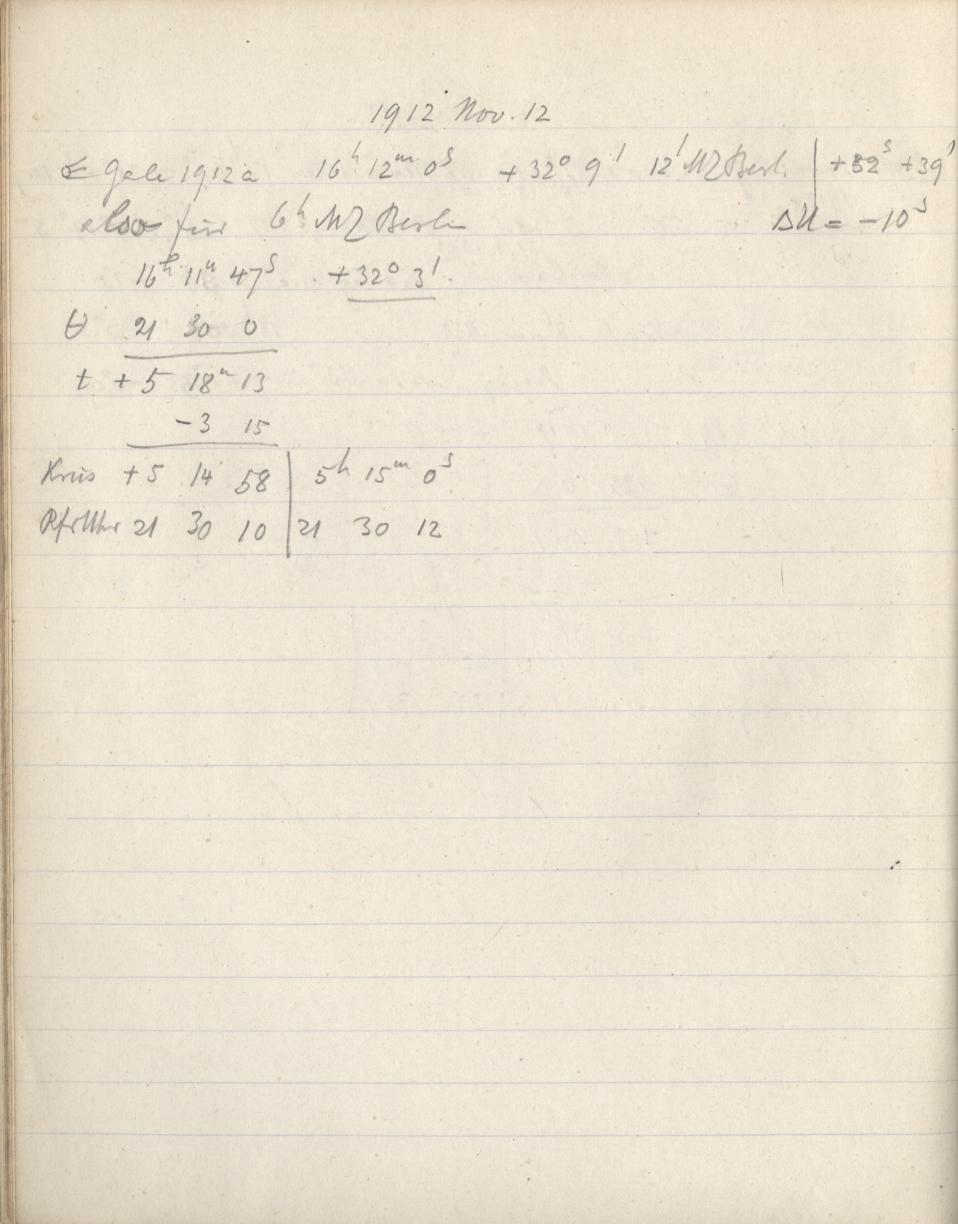 1912 Nov. 12
☄ Gale 1912a 16ʰ 12ᵐ 0ˢ +32° 9' 12ʰ MZ Berl. | +32ˢ +39'
also für 6ʰ MZ Berlin ΔU = -10ˢ
16ʰ 11ᵐ 47ˢ +32° 3'.
θ 21 30 0
t +5 18ᵐ 13
-3 15
Kreis +5 14 58 | 5ʰ 15ᵐ 0ˢ
RfrUhr 21 30 10 | 21 30 12